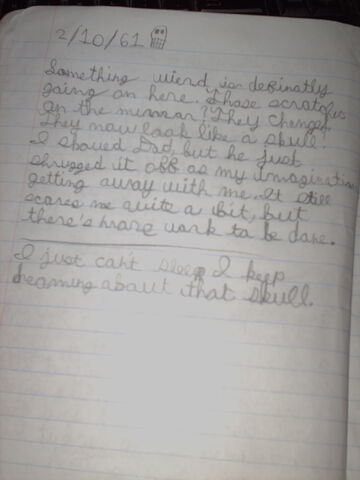 2/10/61
Something wierd is definatly
going on here. Those scratches
on the mirrror? They changed.
They now look like a skull!
I showed Dad, but he just
shrugged it off as my imagination
getting away with me. It still
scares me quite a bit, but
there's more work to be done.
I just can't sleep I keep
dreaming about that skull.